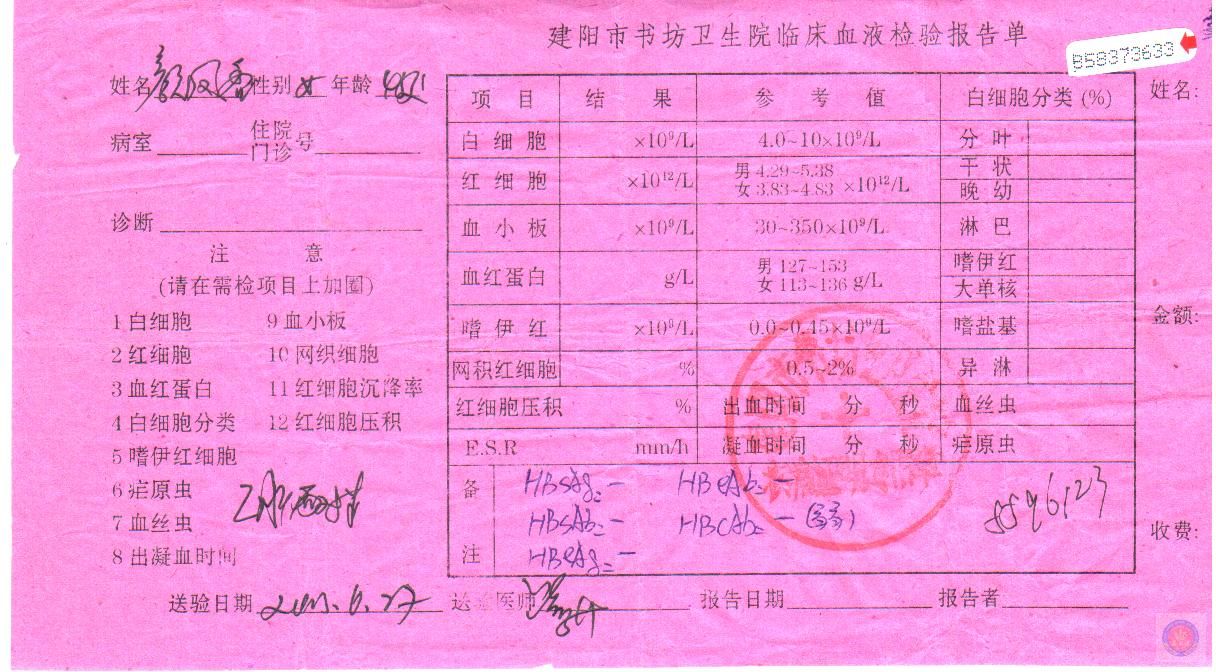 建阳市书坊卫生院临床血液检验报告单
B58373633
姓名 颜凤香 性别 女 年龄
病室 住院门诊号
诊断
注 意
(请在需检项目上加圈)
1 白细胞 9 血小板
2 红细胞 10 网织细胞
3 血红蛋白 11 红细胞沉降率
4 白细胞分类 12 红细胞压积
5 嗜伊红细胞
6 疟原虫
7 血丝虫
8 出凝血时间
项 目 结 果 参 考 值 白细胞分类 (%)
白 细 胞 ×10⁹/L 4.0~10×10⁹/L 分 叶
红 细 胞 ×10¹²/L 男 4.29~5.38 女 3.83~4.83 ×10¹²/L 干 状
晚 幼
血 小 板 ×10⁹/L 30~350×10⁹/L 淋 巴
血红蛋白 g/L 男 127~153 女 113~136 g/L 嗜伊红
大单核
嗜 伊 红 ×10⁹/L 0.0~0.45×10⁹/L 嗜盐基
网积红细胞 % 0.5~2% 异 淋
红细胞压积 % 出血时间 分 秒 血丝虫
E.S.R mm/h 凝血时间 分 秒 疟原虫
备注
HBsAg: − HBeAb: −
HBsAb: − HBcAb: −
HBeAg: −
8596123
送验日期 送验医师 报告日期 报告者
姓名:
金额:
收费: